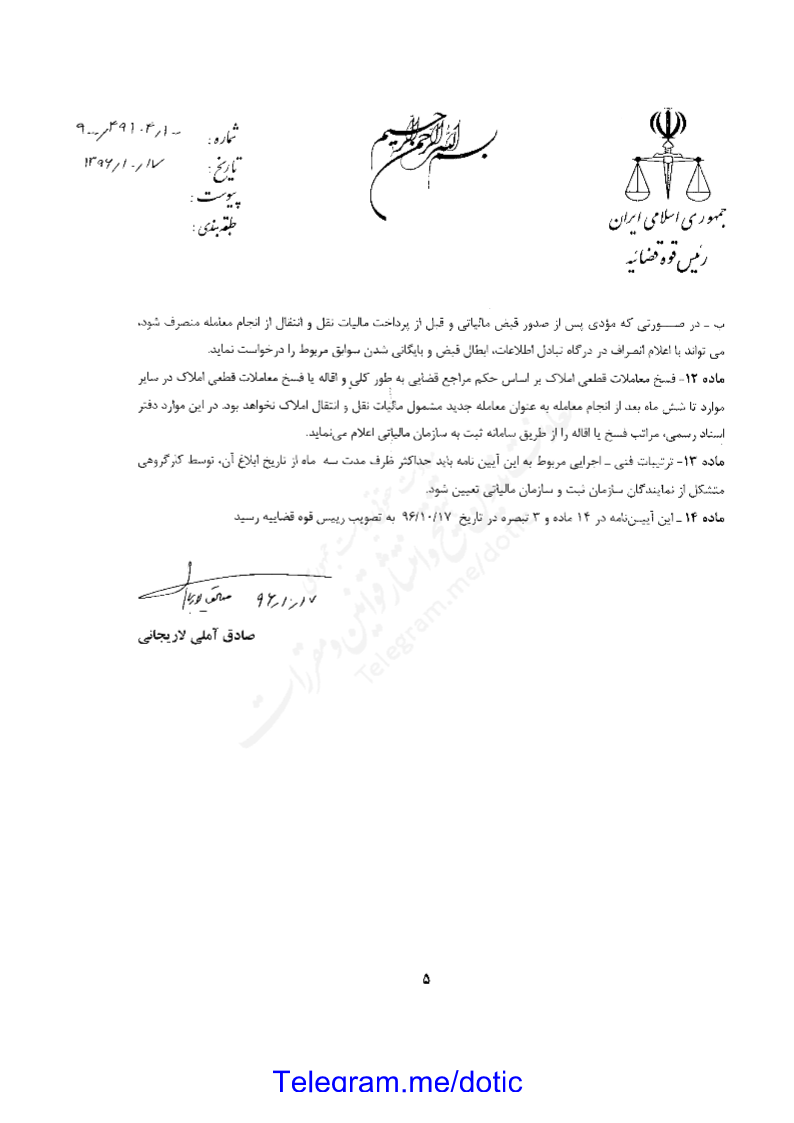 بسم الله الرحمن الرحیم
جمهوری اسلامی ایران
رئیس قوه قضائیه
شماره :
تاریخ : ۱۳۹۶/۱۰/۱۷
پیوست :
طبقه‌بندی :
ب ـ در صورتی که مؤدی پس از صدور قبض مالیاتی و قبل از پرداخت مالیات نقل و انتقال از انجام معامله منصرف شود،
می تواند با اعلام انصراف در درگاه تبادل اطلاعات، ابطال قبض و بایگانی شدن سوابق مربوط را درخواست نماید.
ماده ۱۲- فسخ معاملات قطعی املاک بر اساس حکم مراجع قضایی به طور کلی و اقاله یا فسخ معاملات قطعی املاک در سایر
موارد تا شش ماه بعد از انجام معامله به عنوان معامله جدید مشمول مالیات نقل و انتقال املاک نخواهد بود. در این موارد دفتر
اسناد رسمی، مراتب فسخ یا اقاله را از طریق سامانه ثبت به سازمان مالیاتی اعلام می‌نماید.
ماده ۱۳- ترتیبات فنی ـ اجرایی مربوط به این آیین نامه باید حداکثر ظرف مدت سه ماه از تاریخ ابلاغ آن، توسط کارگروهی
متشکل از نمایندگان سازمان ثبت و سازمان مالیاتی تعیین شود.
ماده ۱۴ ـ این آیین‌نامه در ۱۴ ماده و ۳ تبصره در تاریخ ۹۶/۱۰/۱۷ به تصویب رییس قوه قضاییه رسید
۹۶/۱۰/۱۷
صادق آملی لاریجانی
Telegram.me/dotic
۵
Telegram.me/dotic